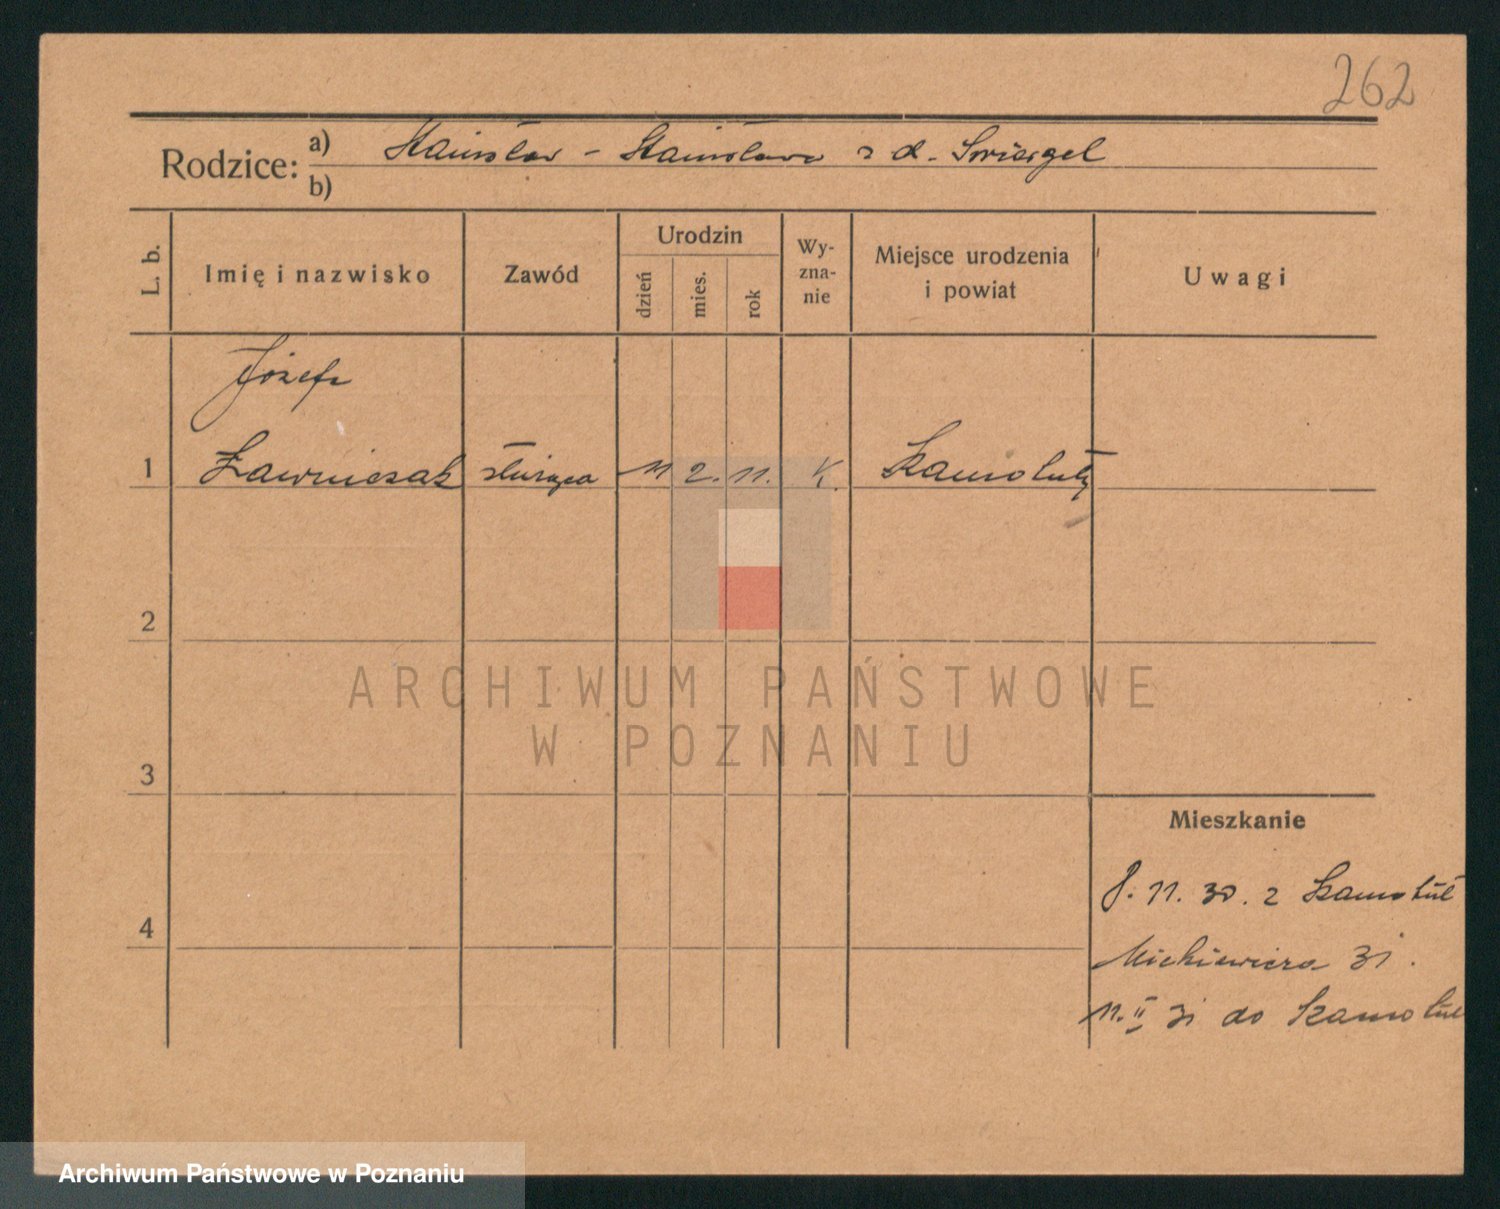 262
Rodzice: a) Stanisław - Stanisława z d. Świergel
b)
L. b.
Imię i nazwisko
Zawód
Urodzin
dzień
mies.
rok
Wy-
zna-
nie
Miejsce urodzenia
i powiat
Uwagi
Józefa
1 Ławniczak służąca 11 2. 11. K. Szamotuły
2
ARCHIWUM PAŃSTWOWE
W POZNANIU
3
Mieszkanie
8. 11. 30. z Szamotuł
4
Mickiewicza 31.
11. II 31 do Szamotuł
Archiwum Państwowe w Poznaniu